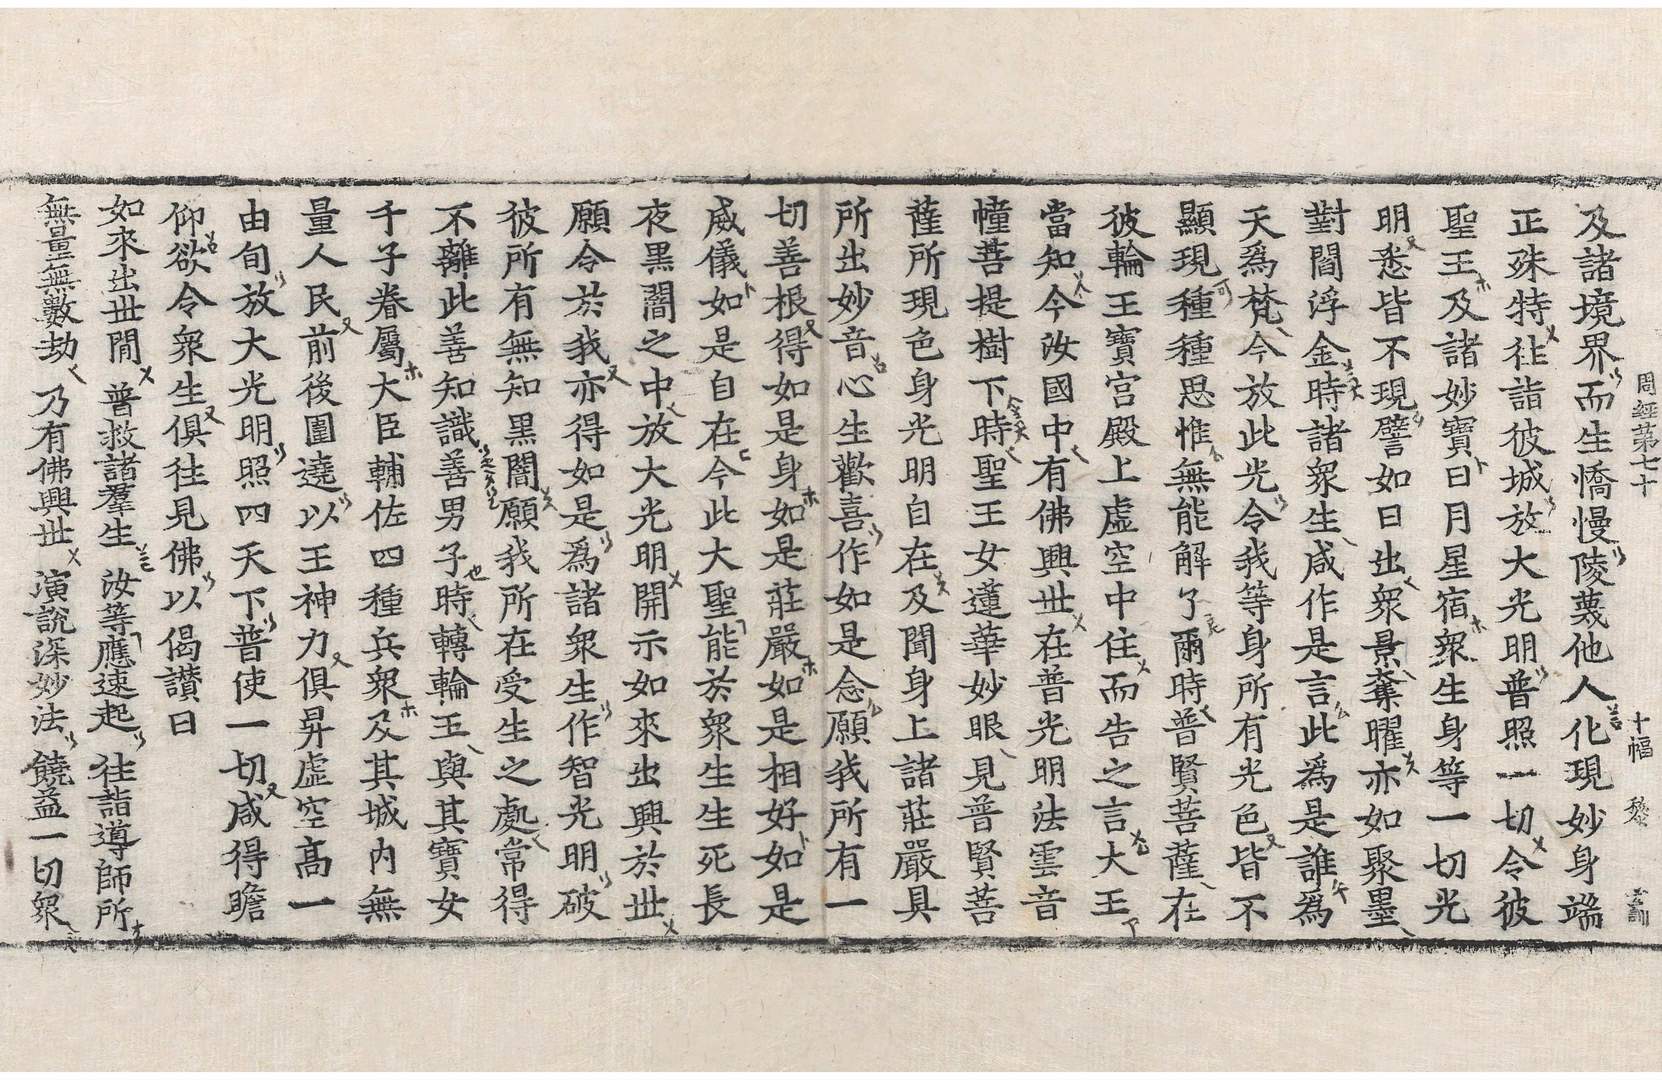 周經第七十 十幅
及諸境界而生憍慢陵蔑他人化現妙身端
正殊特往詣彼城放大光明普照一切令彼
聖王及諸妙寶日月星宿衆生身等一切光
明悉皆不現譬如日出衆景奪曜亦如聚墨
對閻浮金時諸衆生咸作是言此爲是誰爲
天爲梵今放此光令我等身所有光色皆不
顯現種種思惟無能解了爾時普賢菩薩在
彼輪王寶宮殿上虛空中住而告之言大王
當知今汝國中有佛興世在普光明法雲音
幢菩提樹下時聖王女蓮華妙眼見普賢菩
薩所現色身光明自在及聞身上諸莊嚴具
所出妙音心生歡喜作如是念願我所有一
切善根得如是身如是莊嚴如是相好如是
威儀如是自在今此大聖能於衆生生死長
夜黑闇之中放大光明開示如來出興於世
願令於我亦得如是爲諸衆生作智光明破
彼所有無知黑闇願我所在受生之處常得
不離此善知識善男子時轉輪王與其寶女
千子眷屬大臣輔佐四種兵衆及其城內無
量人民前後圍遶以王神力俱昇虛空高一
由旬放大光明照四天下普使一切咸得瞻
仰欲令衆生俱往見佛以偈讃曰
如來出世閒 普救諸羣生 汝等應速起 往詣導師所
無量無數劫 乃有佛興世 演說深妙法 饒益一切衆